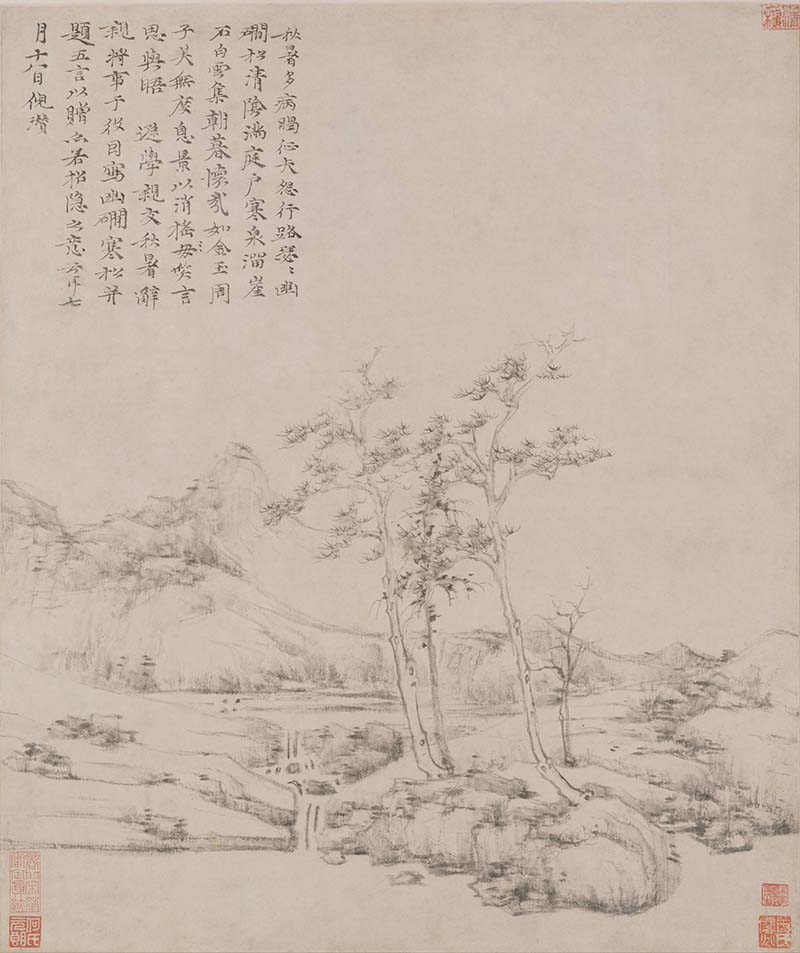 秋暑多病暍征夫怨行路瑟〻幽
澗松清陰滿庭戶寒泉溜崖
石白雲集朝暮懷哉如金玉周
子美無度息景以消搖毋笑言
思與晤 遜學親友秋暑辭
親將事于役因寫幽澗寒松并
題五言以贈亦若招隱之意云耳七
月十八日倪瓚
何氏元朗